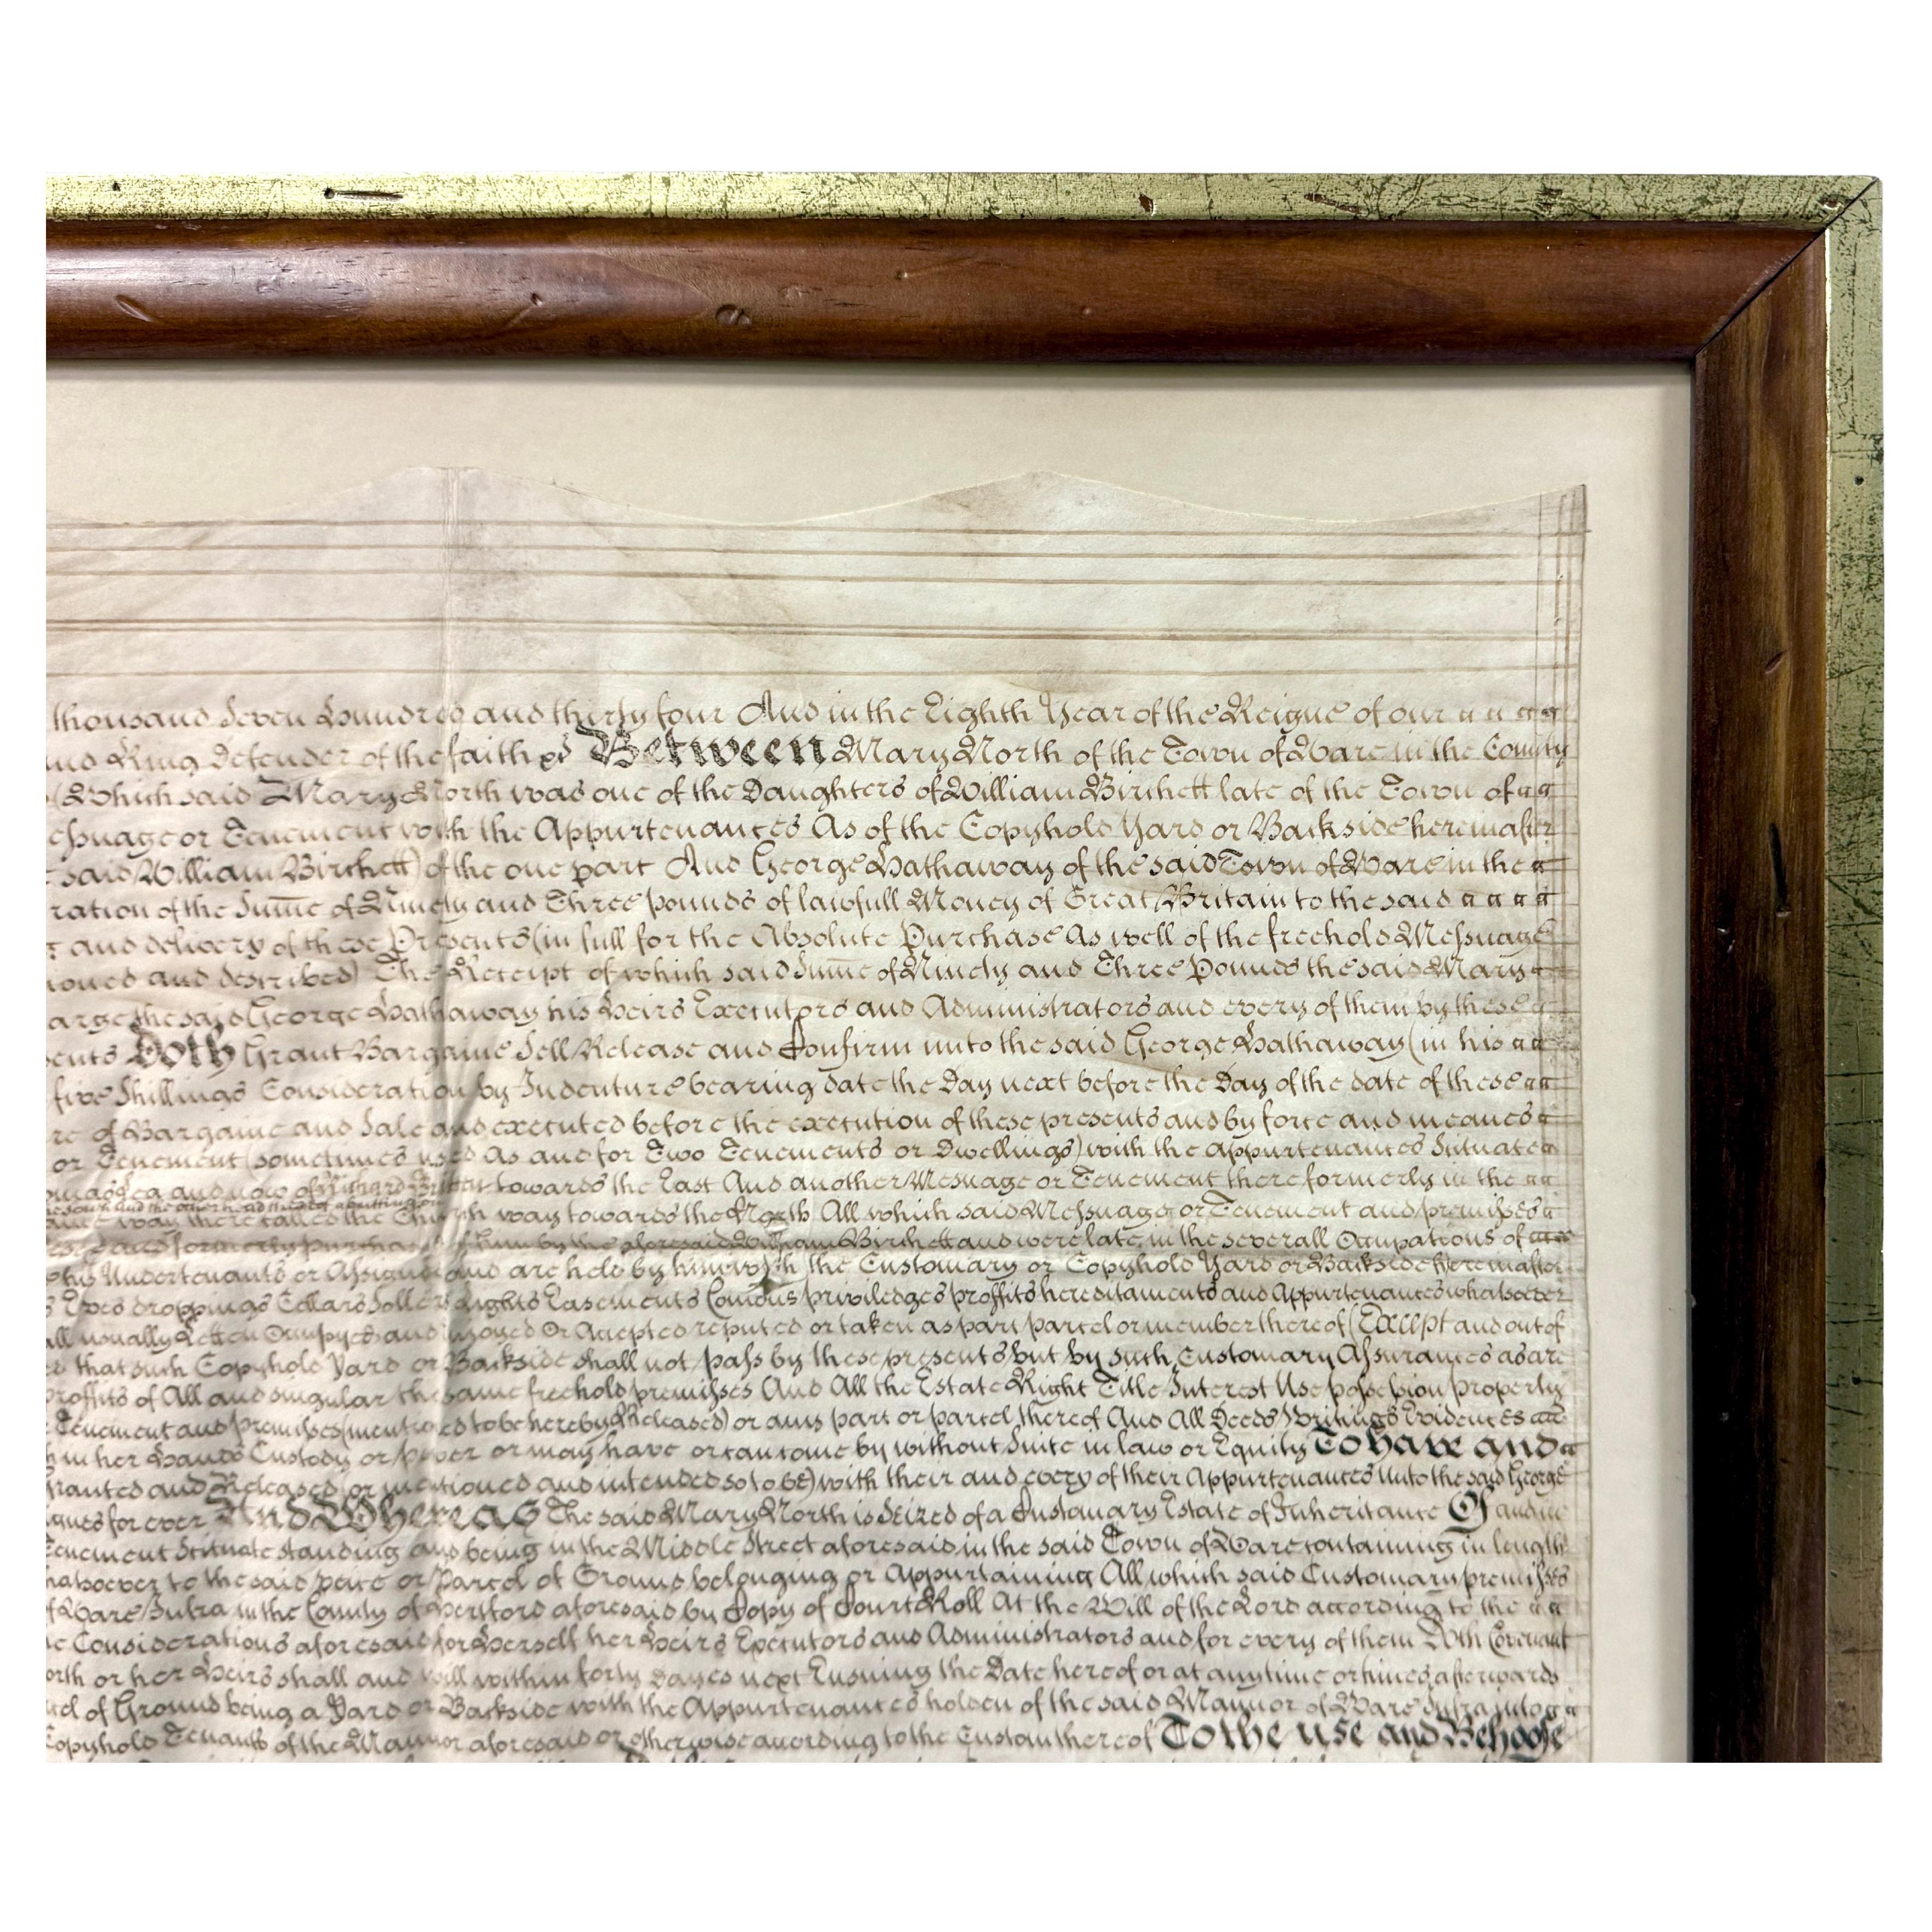 thousand Seven hundred and thirty four And in the Eighth Year of the Reigne of our
and King Defender of the faith &c Between Mary North of the Town of Ware in the County
(Which said Mary North was one of the Daughters of William Birchett late of the Town of
essuage or Tenement with the Appurtenances As of the Copyhold Yard or Backside hereinafter
said William Birchett) of the one part And George Hathaway of the said Town of Ware in the
ration of the Sume of Ninety and Three pounds of lawfull Money of Great Britain to the said
and delivery of these Presents (in full for the Absolute Purchase As well of the freehold Messuage
ioned and described) The Receipt of which said Sume of Ninety and Three Pounds the said Mary
arge the said George Hathaway his Heirs Executors and Administrators and every of them by these
sents Doth Grant Bargaine Sell Release and Confirm unto the said George Hathaway (in his
five Shillings Consideration by Indenture bearing date the Day next before the Day of the date of these
re of Bargaine and Sale and executed before the execution of these presents and by force and meanes
or Tenement (sometimes used As and for Two Tenements or Dwellings) with the appurtenances Situate
and now of Richard towards the East And another Messuage or Tenement there formerly in the
and the other head thereof abutting on
way there called the Church way towards the North All which said Messuage or Tenement and premisses
formerly purchased of him by the aforesaid William Birchett and were late in the severall Occupations of
his Undertenants or Assignes and are held by him with the Customary or Copyhold Yard or Backside hereinafter
Eves droppings Cellars Sollers Lights Easements Comons priviledges proffits hereditaments and Appurtenances whatsoever
all usually Letten Occupyed and injoyed Or Accepted reputed or taken as part parcel or member thereof (Except and out of
that such Copyhold Yard or Backside shall not pass by these presents but by such Customary Assurances as are
proffits of All and singular the same freehold premisses And All the Estate Right Title Interest Use possession property
Tenement and Premisses (mentioned to be hereby Released) or any part or parcel thereof And All Deeds Writings Evidences
in her hands Custody or power or may have or can come by without Suite in law or Equity To have and
Granted and Released or mentioned and intended so to be) with their and every of their Appurtenances Unto the said George
ignes for ever And Whereas The said Mary North is Seized of a Customary Estate of Inheritance Of and in
Tenement Scituate standing and being in the Middle Street aforesaid in the said Town of Ware containing in length
hatsoever to the said peice or Parcel of Ground belonging or Appurtaining All which said Customary premisses
of Ware Infra in the County of Hertford aforesaid by Copy of Court Roll At the Will of the Lord according to the
e Considerations aforesaid for herself her Heirs Executors and Administrators and for every of them Doth Covenant
orth or her Heirs shall and will within forty dayes next Ensuing the Date hereof or at any time or times afterwards
cel of Ground being a Yard or Backside with the Appurtenances holden of the said Mannor of Ware Infra into
Copyhold Tenants of the Mannor aforesaid or otherwise according to the Custom thereof To the use and Behoofe